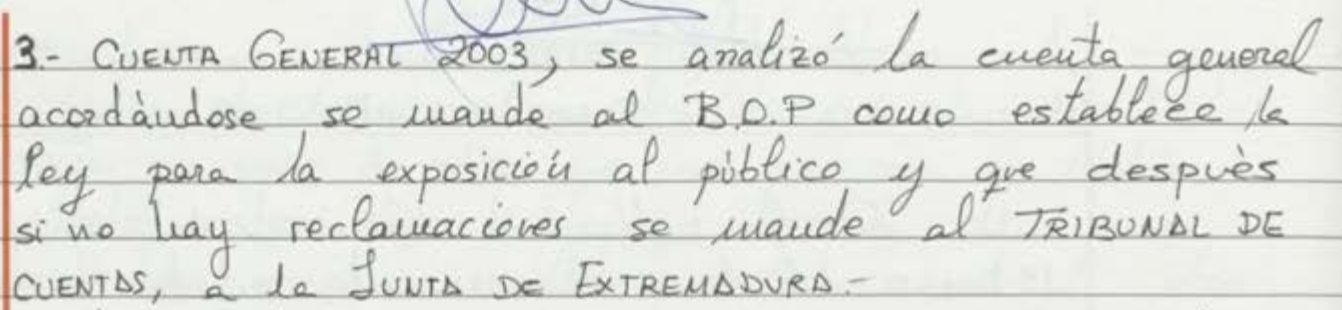 3.- CUENTA GENERAL 2003, se analizó la cuenta general
acordàndose se mande al B.O.P como establece la
ley para la exposición al público y que despuès
si no hay reclamaciones se mande al TRIBUNAL DE
CUENTAS, a la JUNTA DE EXTREMADURA.-